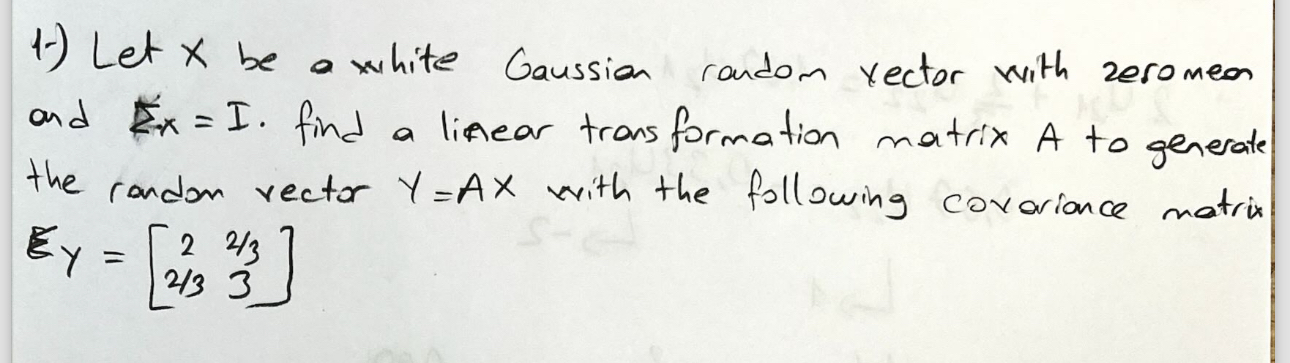 1-) Let X be a white Gaussian random vector with zero mean
and Σx = I. find a linear transformation matrix A to generate
the random vector Y=AX with the following covariance matrix
Σy = [2 2/3
2/3 3]